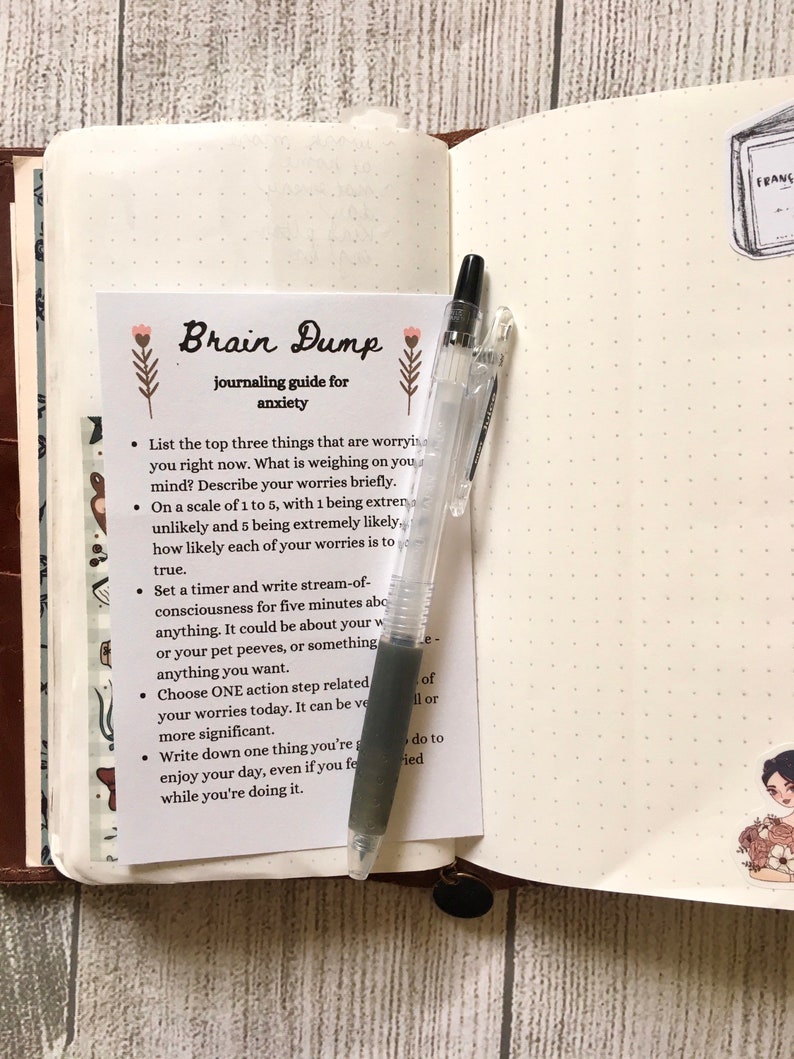 Brain Dump
journaling guide for
anxiety
• List the top three things that are
you right now. What is weighing on
mind? Describe your worries briefly.
• On a scale of 1 to 5, with 1 being
unlikely and 5 being extremely likely,
how likely each of your worries is to
true.
• Set a timer and write stream-of-
consciousness for five minutes
anything. It could be about your
or your pet peeves, or something
anything you want.
• Choose ONE action step related of
your worries today. It can be or
more significant.
• Write down one thing you're do to
enjoy your day, even if you
while you're doing it.
juice